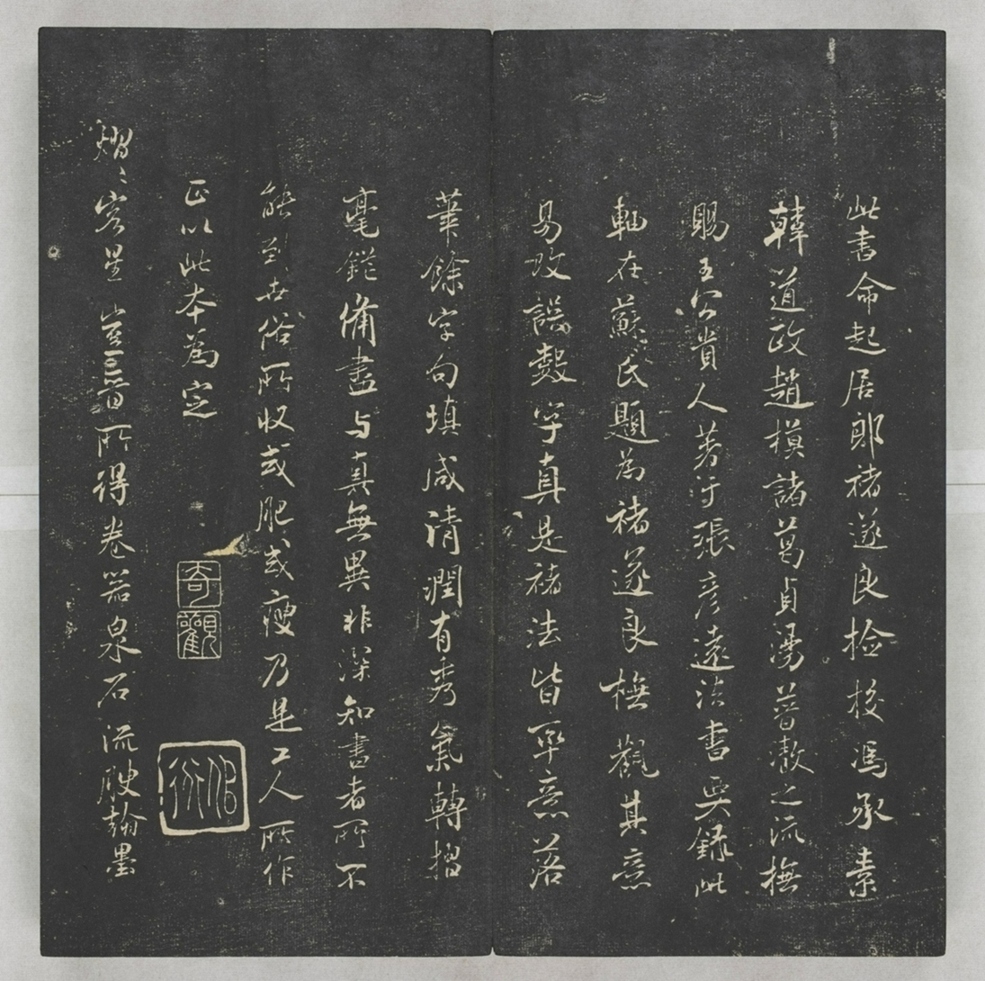 此書命起居郎褚遂良檢校馮承素
韓道政趙模諸葛貞湯普澈之流撫
賜王公貴人著于張彥遠法書要錄此
軸在蘇氏題為褚遂良撫觀其意
易改誤數字真是褚法皆率意落
筆餘字句填咸清潤有秀氣轉摺
毫鋩備盡与真無異非深知書者所不
能到世俗所收或肥或瘦乃是工人所作
正以此本為定
奇觀
熠熠客星豈晉所得卷器泉石流腴翰墨